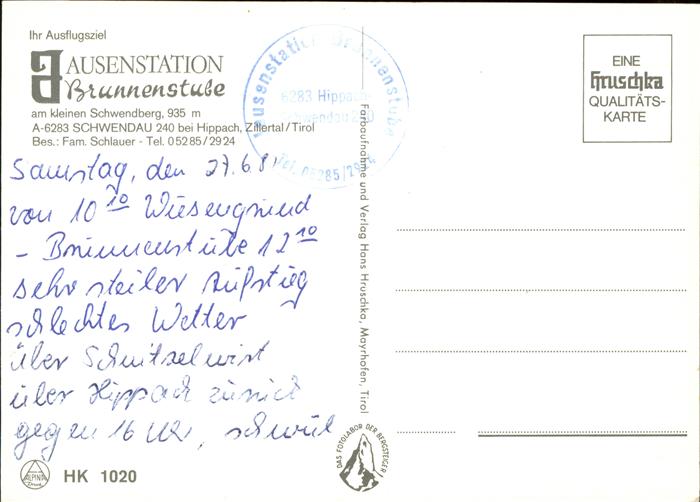 Ihr Ausflugsziel
JAUSENSTATION
Brunnenstube
am kleinen Schwendberg, 935 m
A-6283 SCHWENDAU 240 bei Hippach, Zillertal/Tirol
Bes.: Fam. Schlauer - Tel. 05285/2924
Jausenstation Brunnenstube
6283 Hippach-
Schwendau 240
Tel. 05285/2924
EINE
Hruschka
QUALITÄTS-
KARTE
Samstag, den 27.6.81
von 10 10 Wiesengrund
- Brunnenstube 12 10
sehr steiler Aufstieg
schlechtes Wetter
über Schnitzelwirt
über Hippach zurück
gegen 16 Uhr, schwül
Farbaufnahme und Verlag Hans Hruschka, Mayrhofen, Tirol
DAS FOTOLABOR DER BERGSTEIGER
ALPINA
Druck
HK 1020